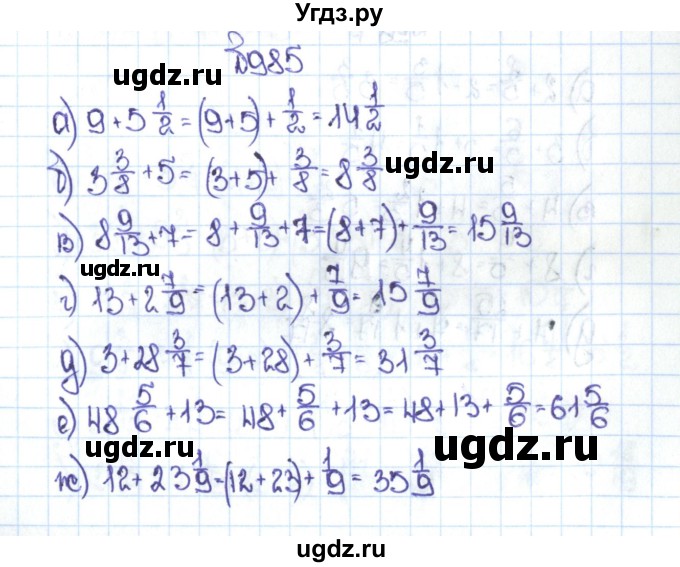 Угдз.ру
№985
ugdz.ru
а) 9 + 5 1/2 = (9+5) + 1/2 = 14 1/2
б) 3 3/8 + 5 = (3+5) + 3/8 = 8 3/8
ugdz.ru
в) 8 9/13 + 7 = 8 + 9/13 + 7 = (8+7) + 9/13 = 15 9/13
ugdz.ru
г) 13 + 2 7/9 = (13+2) + 7/9 = 15 7/9
д) 3 + 28 3/7 = (3+28) + 3/7 = 31 3/7
е) 48 5/6 + 13 = 48 + 5/6 + 13 = 48 + 13 + 5/6 = 61 5/6
ugdz.ru
ugdz.ru
ж) 12 + 23 1/9 = (12+23) + 1/9 = 35 1/9
ugdz.ru